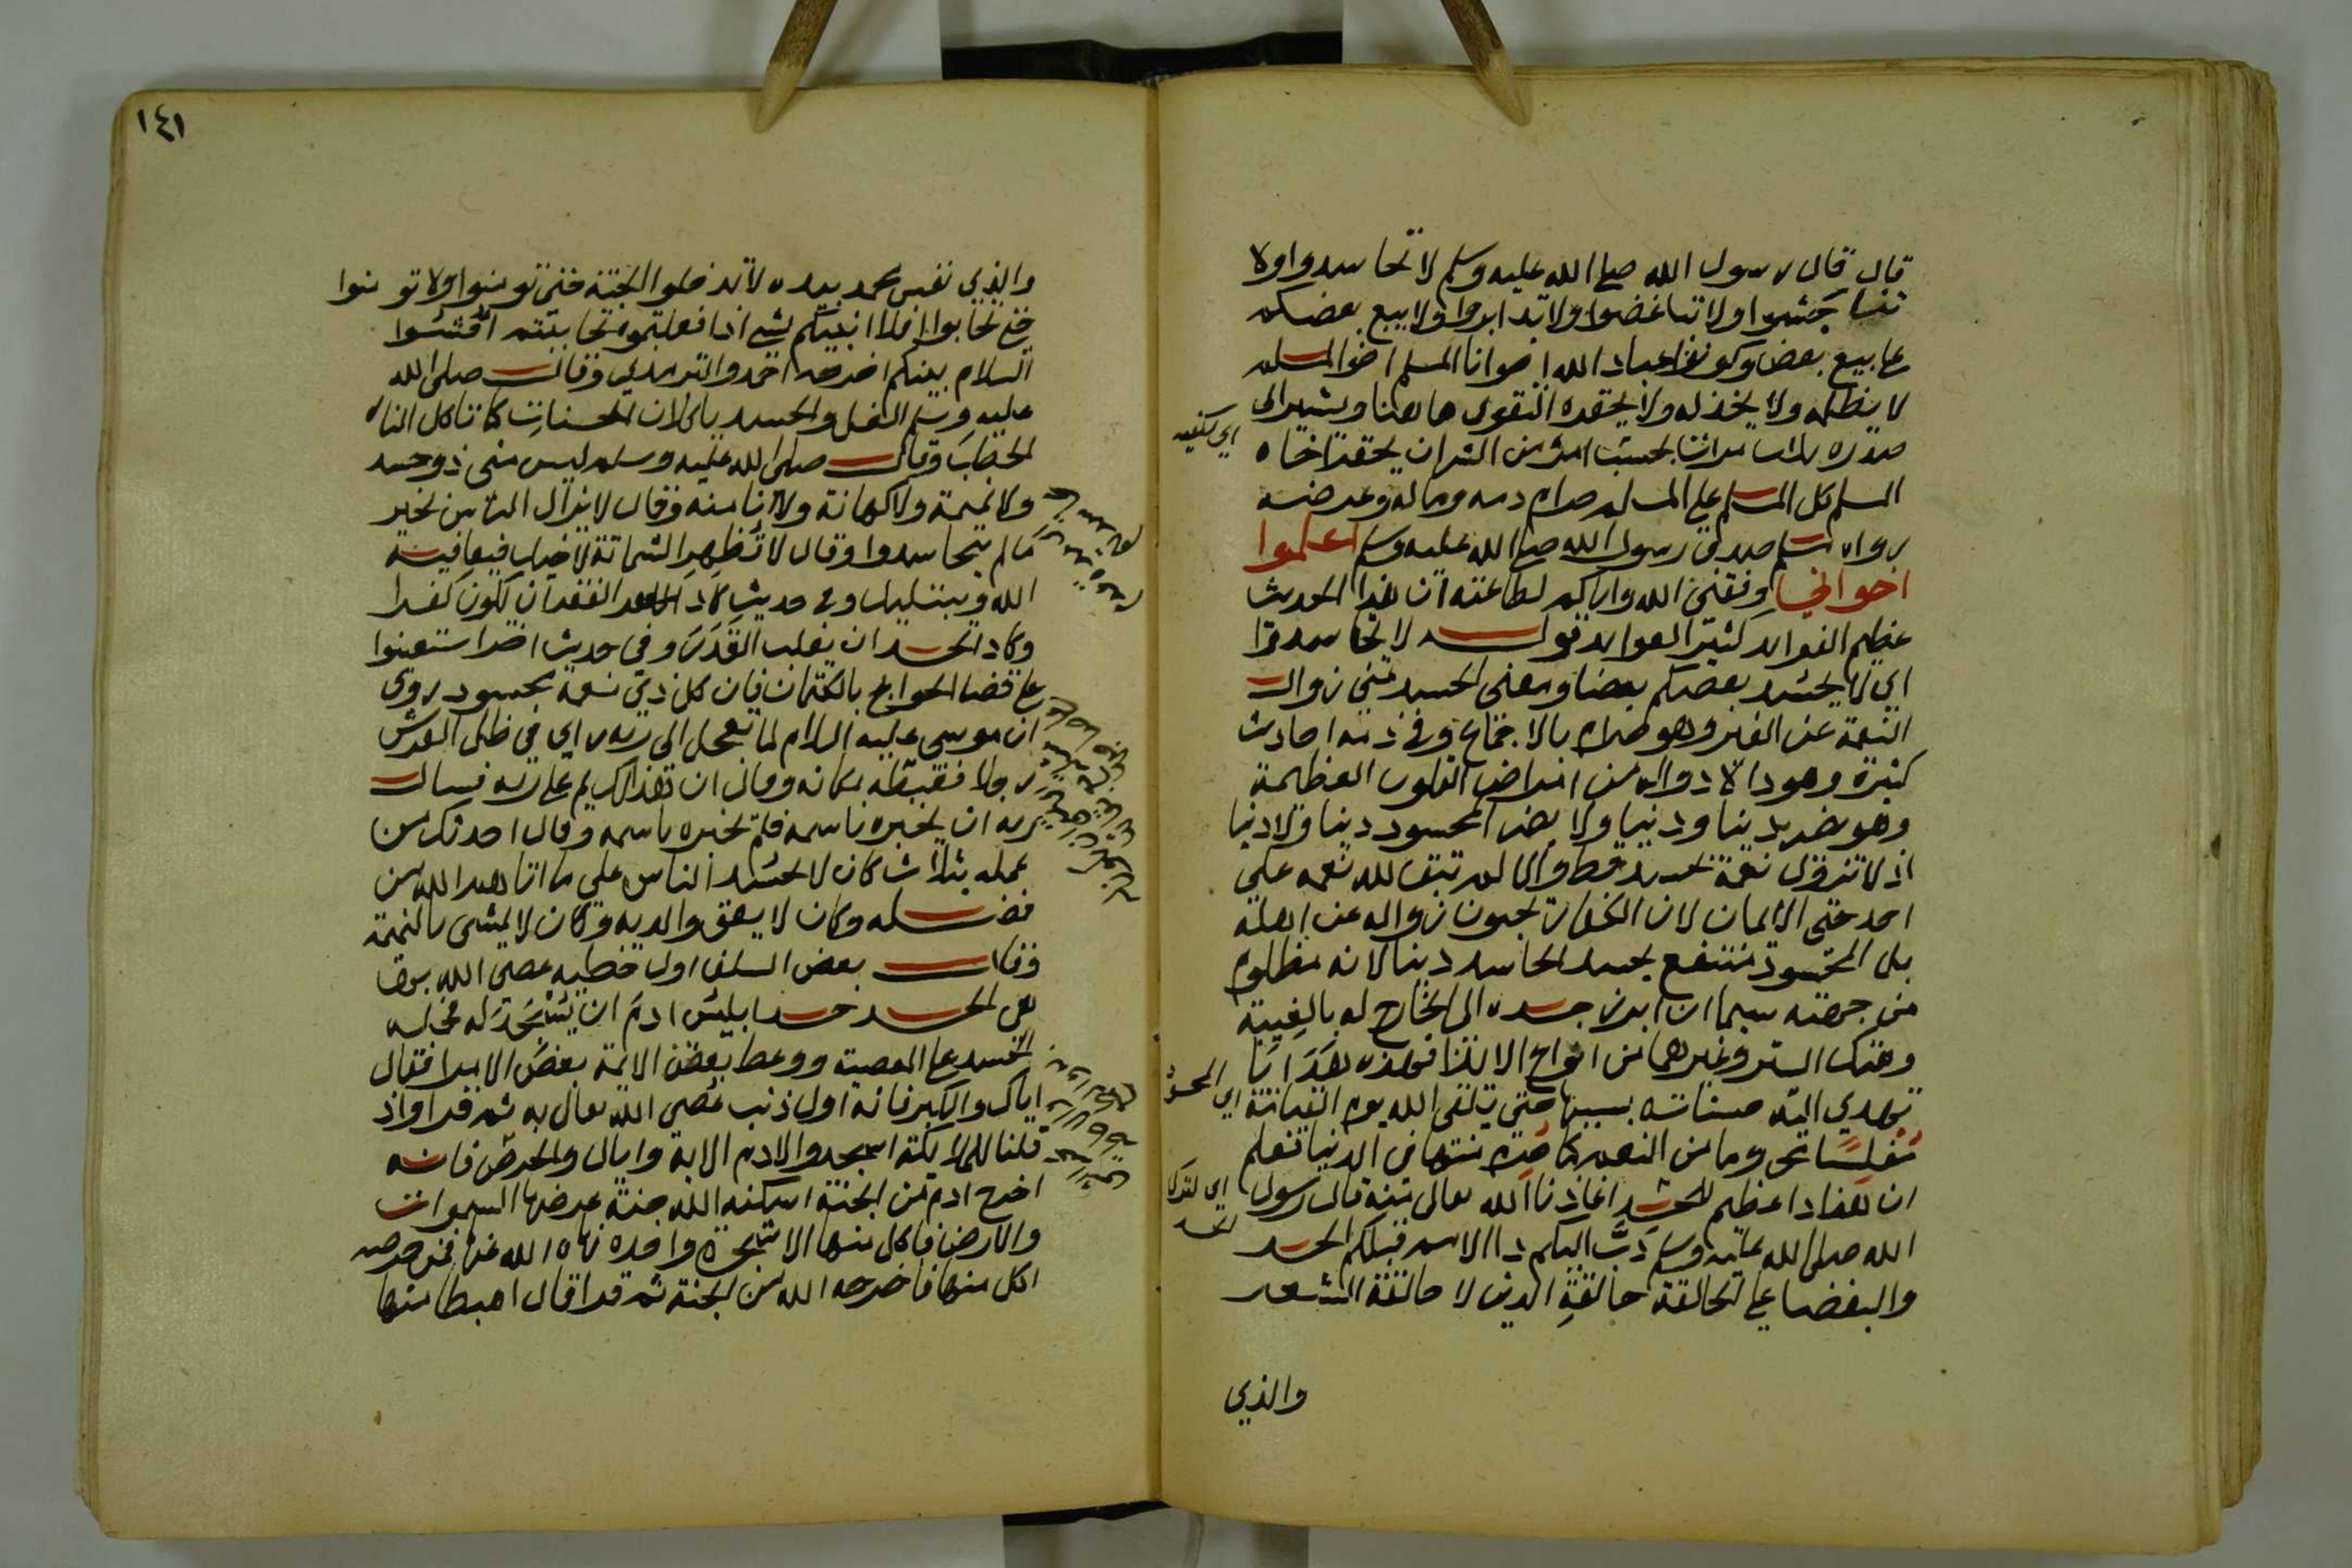 قال قال رسول الله صلي الله عليه وسلم لا تحاسدوا ولا
تناجشوا ولا تباغضوا ولا تدابروا ولا يبيع بعضكم
علي بيع بعض وكونوا عباد الله اخوانا المسلم اخو المسلم
لا يظلمه ولا يخذله ولا يحقره التقوى هاهنا ويشير الى
صدره ثلاث مرات بحسب امرئ من الشر ان يحقر اخاه
المسلم كل المسلم علي المسلم حرام دمه وماله وعرضه
رواه مسلم صدق رسول الله صلي الله عليه وسلم اعلموا
اخواني وفقني الله واياكم لطاعته ان هذا الحديث
عظيم الفوايد كثير العوايد قوله لا تحاسدوا
اي لا يحسد بعضكم بعضا ومعنى الحسد تمني زوال
النعمة عن الغير وهو حرام بالاجماع وفي ذمه احاديث
كثيرة وهو داء لا دوا له من امراض القلوب العظيمة
وهو يضر دينا ودنيا ولا يضر المحسود دينا ولا دنيا
اذ لا تزول نعمة بحسد قط والا لم تبق لله نعمة علي
احد حتى الايمان لان الكفار يحبون زواله عن اهله
بل المحسود منتفع بحسد الحاسد دينا لانه مظلوم
من جهته سيما ان ابرز حسده الى الخارج له بالغيبة
وهتك الستر وغيرهما من انواع الايذا فهذه هدايا
تهدي اليه حسناته بسببها حتى يلقى الله يوم القيامة
مفلسا محروما من النعم كما حرم منها في الدنيا فعلم
ان هذا داء عظيم للحسد اعاذنا الله تعالى منه قال رسول
الله صلى الله عليه وسلم دب اليكم داء الامم قبلكم الحسد
والبغضا هي الحالقة حالقة الدين لا حالقة الشعر
والذي
اي يكفيه
اي المحسود
والذي نفس محمد بيده لا تدخلوا الجنة حتى تومنوا ولا تومنوا
حتى تحابوا افلا انبيكم بشي اذا فعلتموه تحاببتم افشوا
السلام بينكم اخرجه احمد والترمذي وقال صلى الله
عليه وسلم الغل والحسد ياكلان الحسنات كما تاكل النار
الحطب وقال صلى الله عليه وسلم ليس مني ذو حسد
ولا نميمة ولا كهانة ولا انا منه وقال لا يزال الناس بخير
ما لم يتحاسدوا وقال لا تظهر الشماتة لاخيك فيعافيه
الله ويبتليك وفي حديث كاد الفقر ان يكون كفرا
وكاد الحسد ان يغلب القدر وفي حديث اخر استعينوا
علي قضا الحوايج بالكتمان فان كل ذي نعمة محسود روي
ان موسى عليه السلام لما تعجل الى ربه راي في ظل العرش
رجلا فغبطه بمكانه وقال ان هذا الكريم علي ربه فسال
ربه ان يخبره باسمه فلم يخبره باسمه وقال احدثك من
عمله بثلاث كان لا يحسد الناس علي ما اتاهم الله من
فضله وكان لا يعق والديه وكان لا يمشي بالنميمة
وقال بعض السلف اول خطيه عصي الله بها
هي الحسد حسد ابليس ادم ان يسجد له فحمله
الحسد علي المعصية ووعظ بعض الايمة بعض الامرا فقال
اياك والكبر فانه اول ذنب عصي الله تعالى به ثم قرا واذ
قلنا للملايكة اسجدوا لادم الاية واياك والحرص فانه
اخرج ادم من الجنة اسكنه الله جنة عرضها السموات
والارض فاكل منها الا شجرة واحدة نهاه الله عنها فمن حرصه
اكل منها فاخرجه الله من الجنة ثم قرا قال اهبطا منها
١٤١